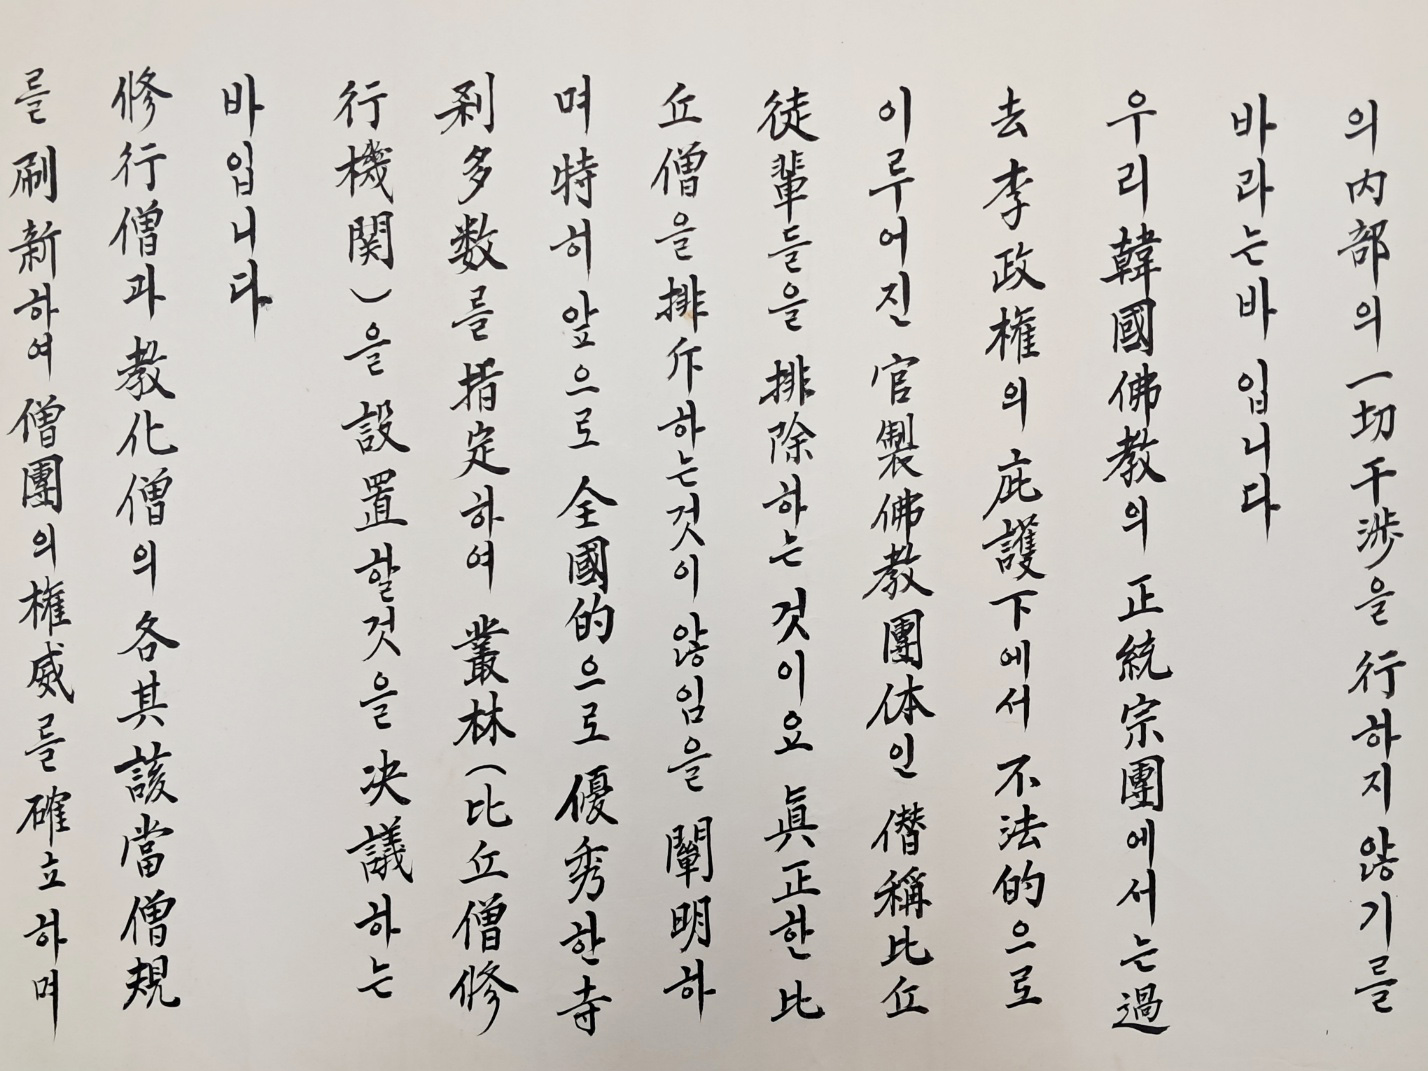 의 内部의 一切干渉을 行하지 않기를
바라는바 입니다
우리 韓國佛教의 正統宗團에서는 過
去 李政権의 庇護下에서 不法的으로
이루어진 官製佛教團体인 僭稱比丘
徒輩들을 排除하는 것이요 眞正한 比
丘僧을 排斥하는것이 않임을 闡明하
며 特히 앞으로 全國的으로 優秀한 寺
刹多数를 指定하여 叢林(比丘僧修
行機関)을 設置할것을 決議하는
바입니다
修行僧과 教化僧의 各其 該當僧規
를 刷新하여 僧團의 権威를 確立하며